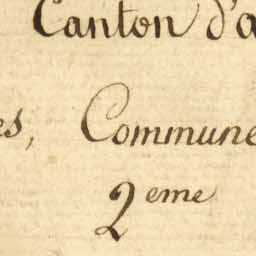 Canton d'a
es, Commune
2eme